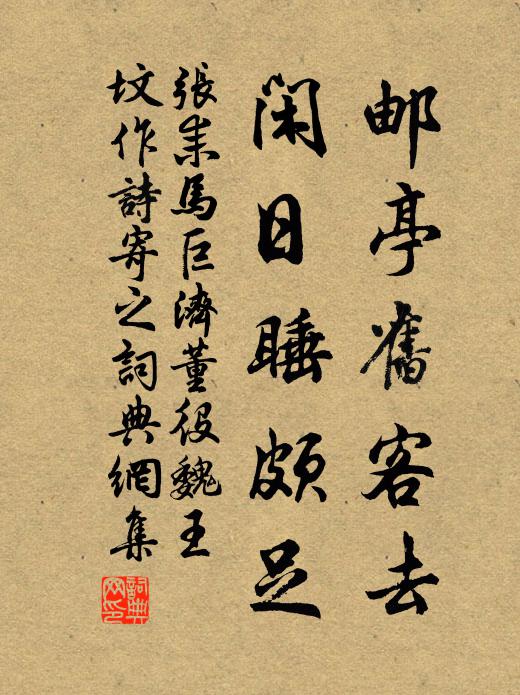 邮亭舊客去
閑日睡頗足
張耒馬巨濟董役魏王
坟作詩寄之詞典網集
詞典網印